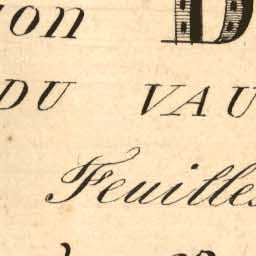 ion D
DU VAU
Feuilles